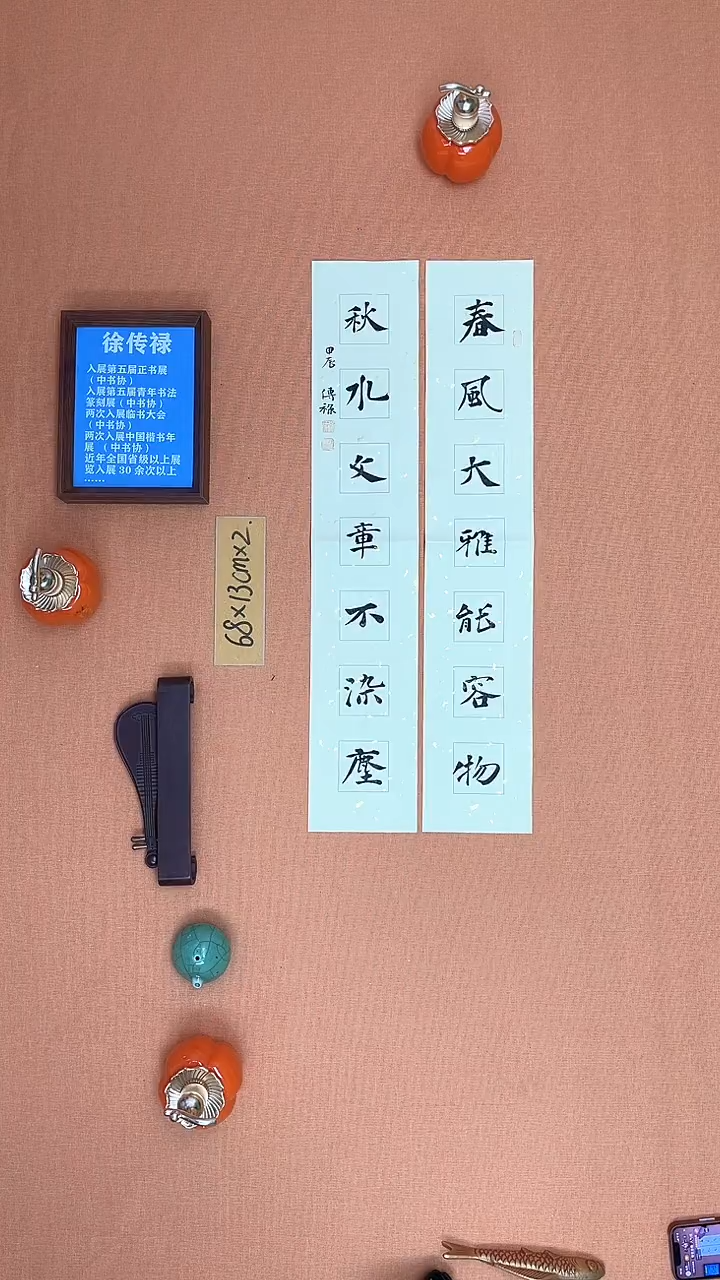 春風大雅能容物
秋水文章不染塵
甲辰 傳祿
徐传禄
入展第五届正书展
(中书协)
入展第五届青年书法
篆刻展(中书协)
两次入展临书大会
(中书协)
两次入展中国楷书年
展(中书协)
近年全国省级以上展
览入展30余次以上
......
68×13cm×2.